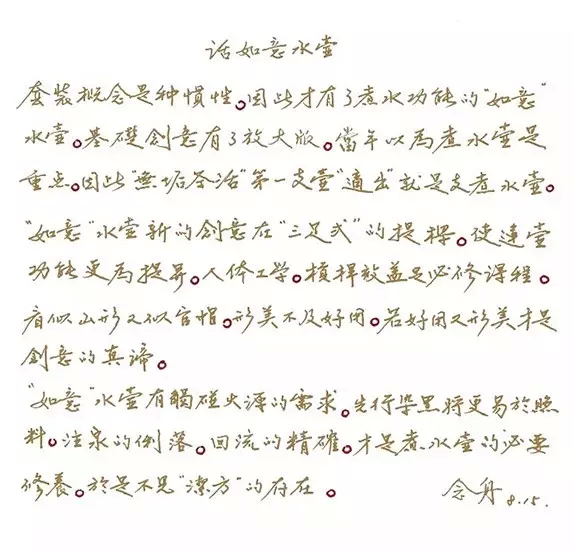 话如意水壺
套裝概念是种慣性。因此才有了煮水功能的"如意"
水壺。基礎創意有了放大版。當年以為煮水壺是
重点。因此"無垢茶活"第一支壺"適出"就是支煮水壺。
"如意"水壺新的創意在"三足式"的提樑。使連壺
功能更為提昇。人体工学。槓桿效益是必修課程。
看似山形又似官帽。形美不及好用。若好用又形美才是
創意的真諦。
"如意"水壺有觸碰火源的需求。先行染黑將更易於照
料。注泉的俐落。回流的精確。才是煮水壺的必要
修養。於是不見"潔方"的存在。
念舟 8.15.